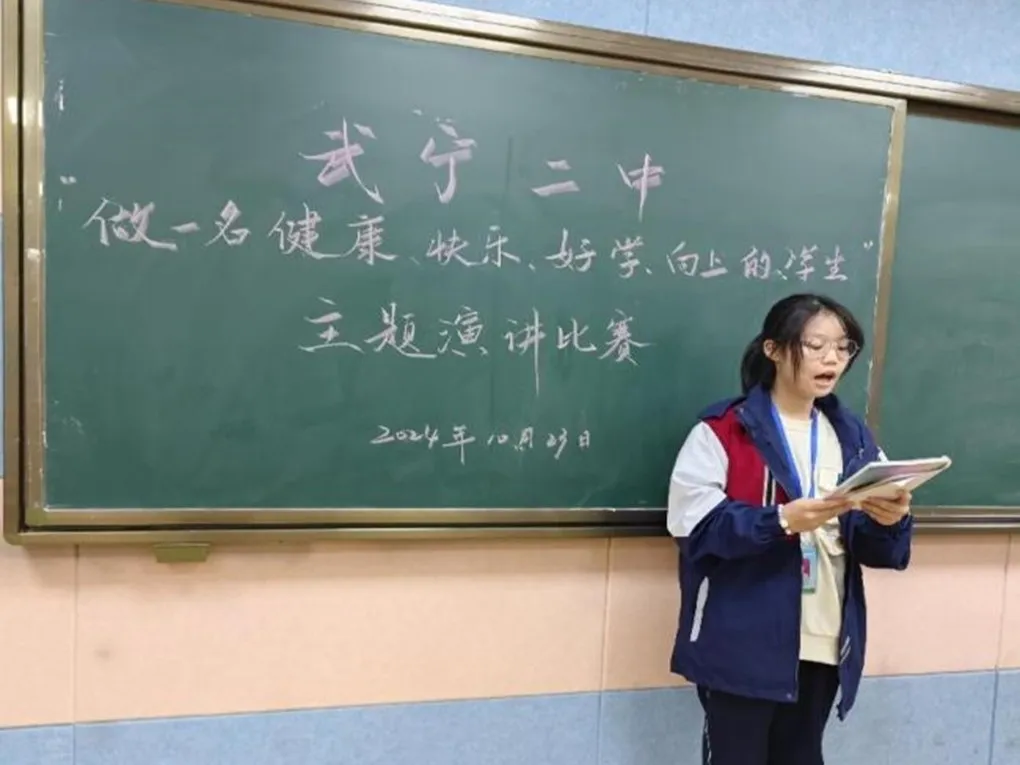 武宁二中
"做一名健康、快乐、好学、向上的学生"
主题演讲比赛
2024年10月23日